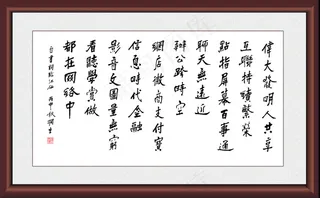 偉大發明人共享
互聯持續繁榮
點指屏幕百事通
聊天無遠近
辦公跨時空
網店微商支付寶
信息時代金融
影音文圖量無窮
看聽學賞做
都在网絡中
自書詞臨江仙 丙申秋